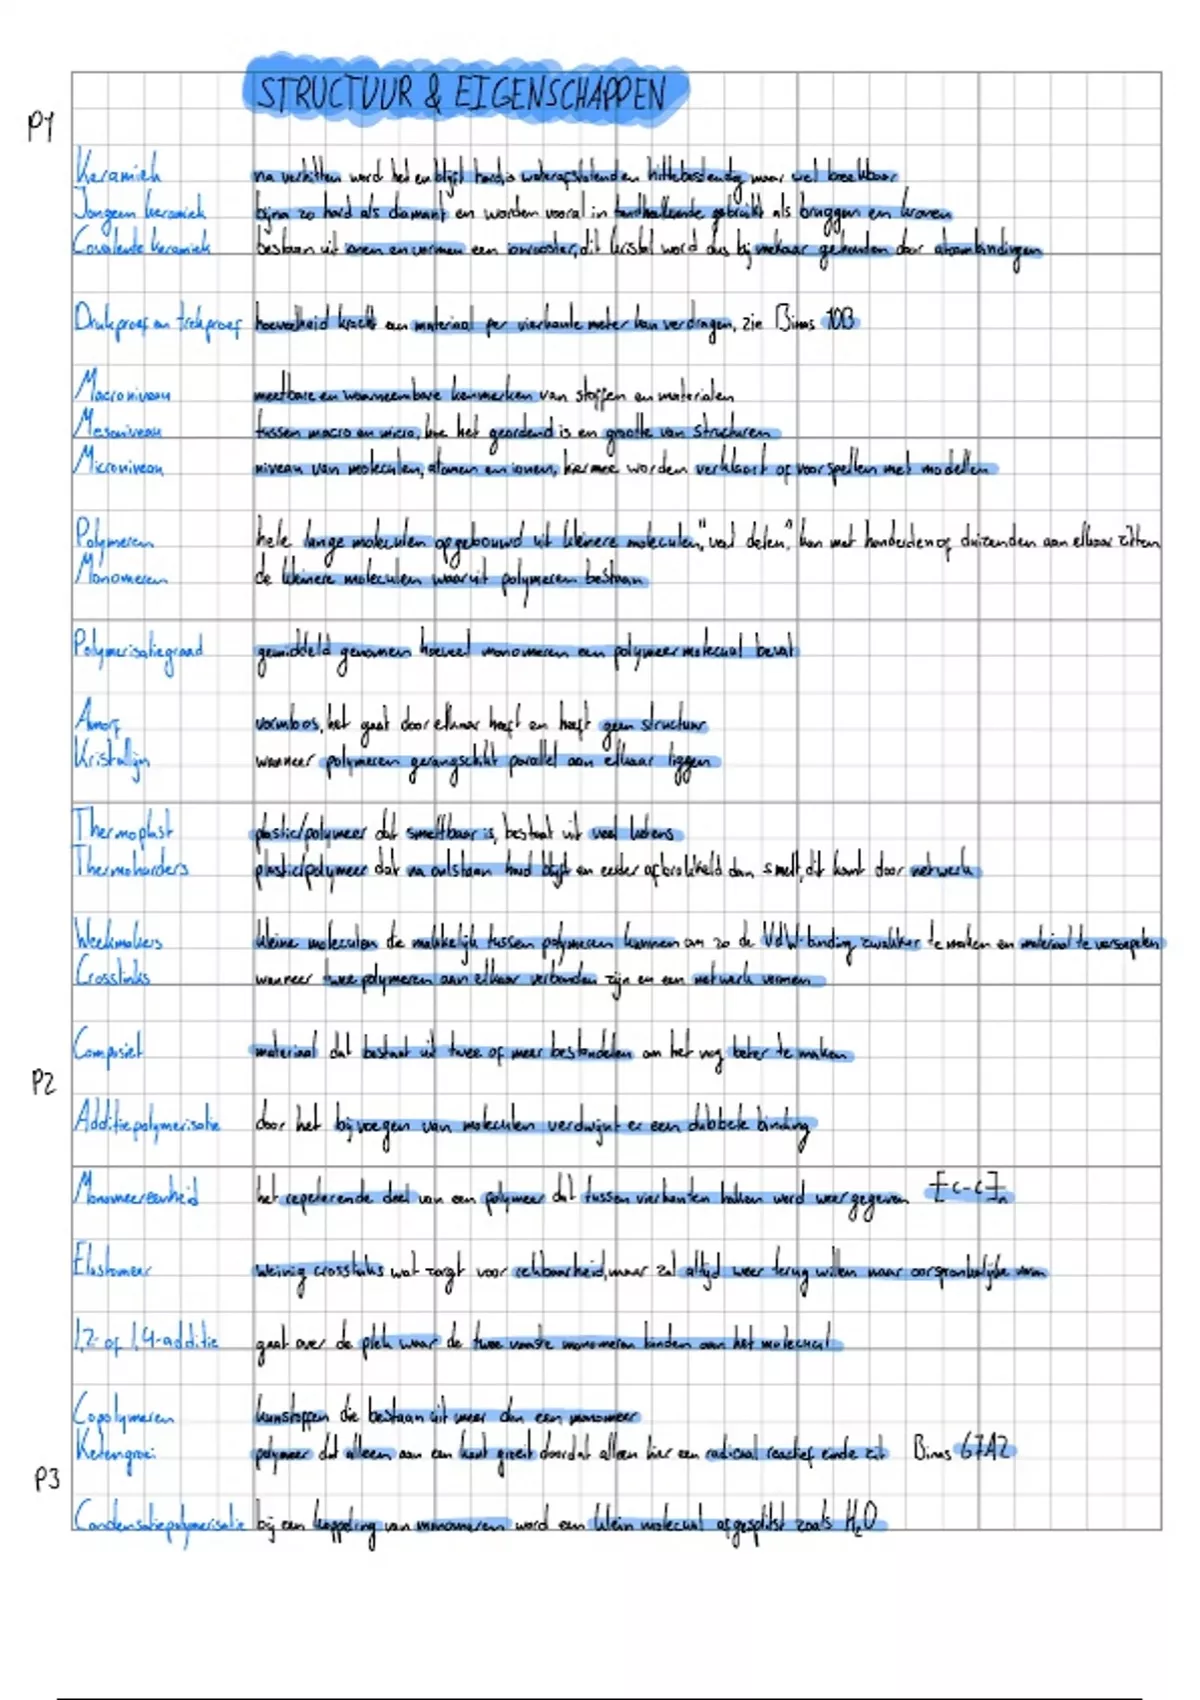 STRUCTUUR & EIGENSCHAPPEN
P1
Keramiek na verhitten word het en blijft hard, is waterafstotend en hittebestendig maar wel breekbaar
Iongeen keramiek bijna zo hard als diamant en worden vooral in tandheelkunde gebruikt als bruggen en kronen
Covalente keramiek bestaan uit ionen en vormen een ionrooster, dit kristal word dus bij mekaar gehouden door atoombindingen
Drukproef en trekproef hoeveelheid kracht een materiaal per vierkante meter kan verdragen, zie Binas 10B
Macroniveau meetbare en waarneembare kenmerken van stoffen en materialen
Mesoniveau tussen macro en micro, hoe het geordend is en grootte van structuren
Microniveau niveau van moleculen, atomen en ionen, hiermee worden verklaart of voorspellen met modellen
Polymeren hele lange moleculen opgebouwd uit kleinere moleculen, "veel delen", kan met honderden of duizenden aan elkaar zitten
Monomeren de kleinere moleculen waaruit polymeren bestaan
Polymerisatiegraad gemiddeld genomen hoeveel monomeren een polymeer molecuul bevat
Amorf vormloos, het gaat door elkaar heeft en heeft geen structuur
Kristallijn wanneer polymeren gerangschikt parallel aan elkaar liggen
Thermoplast plastic/polymeer dat smeltbaar is, bestaat uit veel ketens
Thermoharders plastic/polymeer dat na ontstaan hard blijft en eerder afbrokkeld dan smelt, dit komt door netwerk
Weekmakers kleine moleculen die makkelijk tussen polymeren kunnen om zo de VdW-binding zwakker te maken en materiaal te versoepelen
Crosslinks wanneer twee polymeren aan elkaar verbonden zijn en een netwerk vormen
Composiet materiaal dat bestaat uit twee of meer bestandelen om het nog beter te maken
P2
Additiepolymerisatie door het bijvoegen van moleculen verdwijnt er een dubbele binding
Monomeereenheid het repeterende deel van een polymeer dat tussen vierkanten haken word weergegeven [C-C]n
Elastomeer weinig crosslinks wat zorgt voor rekbaarheid, maar zal altijd weer terug willen naar oorspronkelijke vorm
1,2- of 1,4-additie gaat over de plek waar de twee vaste monomeren binden aan het molecuul
Copolymeren kunstoffen die bestaan uit meer dan een monomeer
Ketengroei polymeer dat alleen aan een kant groeit doordat alleen hier een radicaal reactief einde zit Binas 67A2
P3
Condensatiepolymerisatie bij een koppeling van monomeren word een klein molecuul afgesplitst zoals H₂O